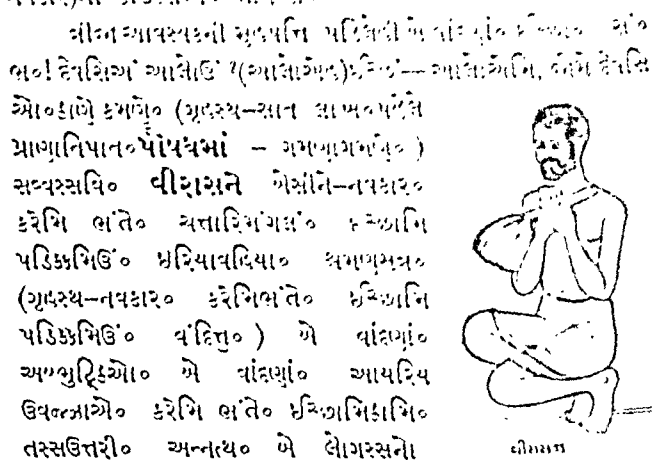 ત્રીજા આવશ્યકની મુહપત્તિ પડિલેહી બે વાંદણાં૦ ઇચ્છા૦ સં૦
ભ૦! દેવસિઅં આલોઉં ?(આલોએહ)ઇચ્છં— આલોએમિ, જોમે દેવસિ
ઓ૦ઠાણે કમણે૦ (ગૃહસ્થ–સાત લાખ૦પહેલે
પ્રાણાતિપાત૦પૌષધમાં – ગમણાગમણે૦ )
સવ્વસ્સવિ૦ વીરાસને બેસીને–નવકાર૦
કરેમિ ભંતે૦ ચત્તારિમંગલં૦ ઇચ્છામિ
પડિક્કમિઉં૦ ઇરિયાવહિયા૦ શ્રમણસૂત્ર૦
(ગૃહસ્થ–નવકાર૦ કરેમિભંતે૦ ઇચ્છામિ
પડિક્કમિઉં૦ વંદિત્તુ૦ ) બે વાંદણાં૦
અબ્ભુટ્ઠિઓ૦ બે વાંદણાં૦ આયરિય
ઉવજ્ઝાએ૦ કરેમિ ભંતે૦ ઇચ્છામિઠામિ૦
તસ્સઉત્તરી૦ અન્નત્થ૦ બે લોગસ્સનો
વીરાસન